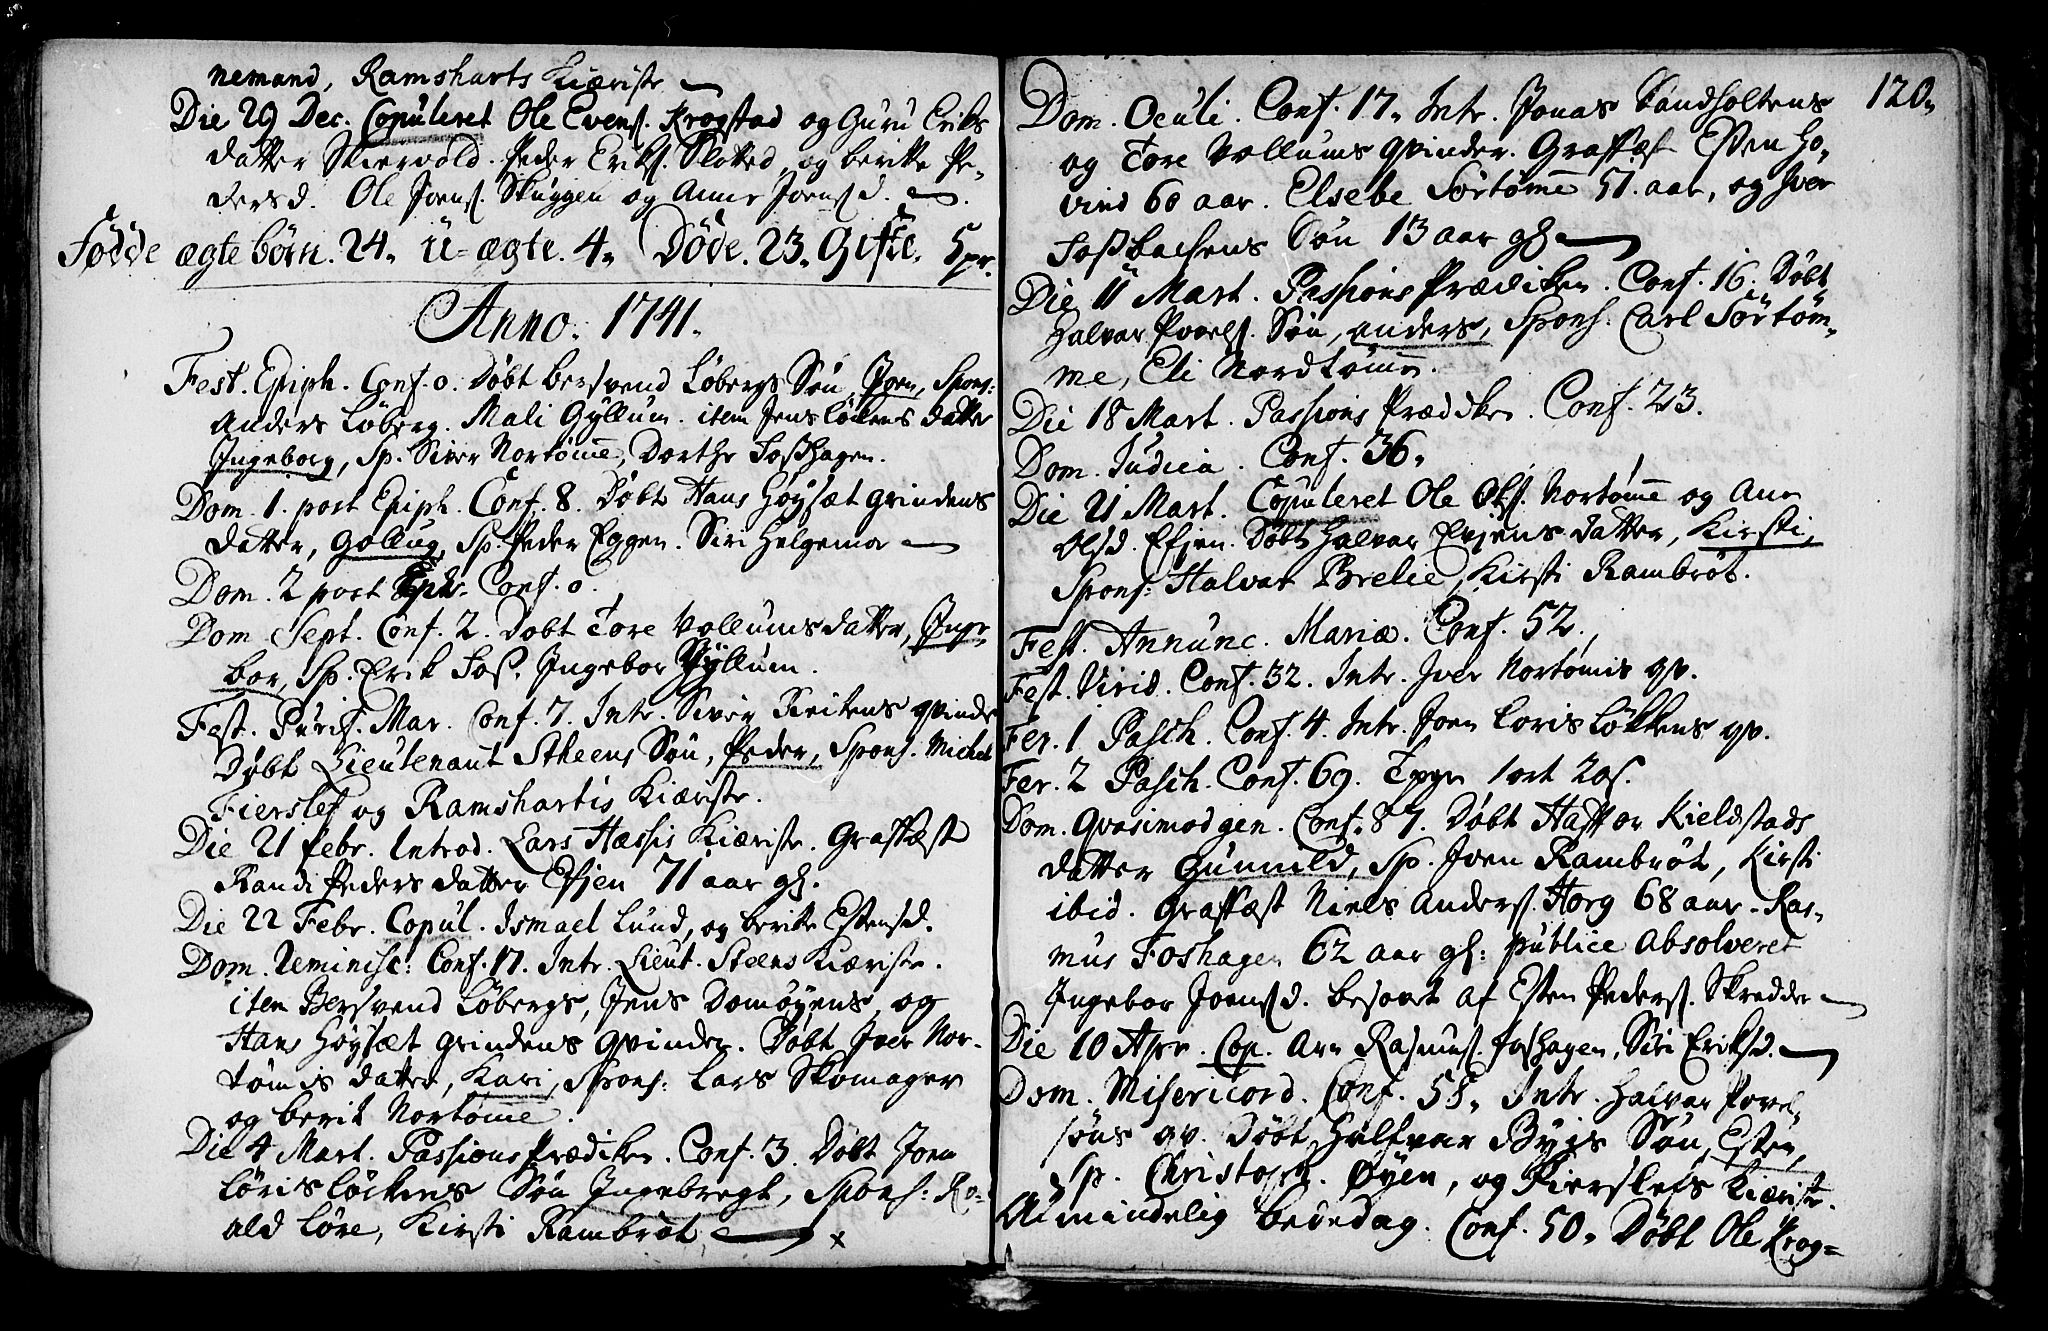 nemand, Ramsharts Kiæriste
Die 29 Dec. Copuleret Ole Evens. Krogstad og Guru Eriks
datter Skiervold. Peder Eriks. Slotted, og beritte Pe-
dersd. Ole Joens. Skuggen og Anne Joensd.
Fødde ægte børn. 24. u-ægte. 4. Døde. 23. Gifte. 5 pr.
Anno. 1741.
Fest. Epiph. Conf. 0. Døbt Bersvend Løbergs Søn, Joen, Spons:
Anders Løberg. Mali Gyllum. item Jens Løckens datter
Ingeborg, Sp. Siver Nortømme, Dorthe Fosshagen.
Dom. 1. post Epiph. Conf. 8. Døbt Hans Høysæt grindens
datter, Gollug, Sp. Peder Eggen. Siri Helgemo
Dom. 2 post Eph. Conf. 0.
Dom. Sept. Conf. 2. Døbt Tore Vollums datter, Inge-
bor, Sp. Erik Foss. Ingebor Gyllum.
Fest. Purif. Mar. Conf. 7. Intr. Siver Kritens qvinde
Døbt Lieutenant Stheens Søn, Peder, Spons. Michel
Fierslef og Ramshartis Kiæriste.
Die 21 febr. Introd. Lars Hæssis Kiæriste. Graffæst
Randi Peders datter Efjen 71 aar gl.
Die 22 Febr. Copul. Ismael Lund, og berite Estensd.
Dom. Reminisc: Conf. 17. Intr. Lieut. Steens Kiæriste.
item Bersvend Løbergs, Jens Domøyens, og
Hans Høysæt grindens qvinder. Døbt Iver Nor-
tømis datter, Kari, Spons: Lars Skomager
og berit Nortømme.
Die 4 Mart. Passions Prædiken. Conf. 3. Døbt Joen
Løris Løckens Søn Ingebregt, Spons: Ro-
ald Løre, Kirsti Rambrøt. x
120.
Dom. Oculi. Conf. 17. Intr. Jonas Sandholtens
og Tore Vollums qvinder. Graffæst Esten Ho-
vind 60 aar. Elsebe Sørtømme 51. aar, og Iver
Fossbachens Søn 13 aar gl.
Die 11 Mart. Passions Prædiken. Conf. 16. Døbt
Halvar Povels. Søn, anders, Spons. Carl Sørtøm-
me, Eli Nordtømme.
Die 18 Mart. Passions Prædiken. Conf. 23.
Dom. Judica. Conf. 36.
Die 21 Mart. Copuleret Ole Ols. Nortømme og Ane
Olsd. Efjen. Døbt Halvar Evjens datter, Kirsti,
Spons: Halvar Brelie, Kirsti Rambrøt.
Fest. Annunc. Mariæ. Conf. 52.
Fest. Virid. Conf. 32. Intr. Iver Nortømis qv.
Fer. 1 Pasch. Conf. 4. Intr. Joen Loris Løkkens qv.
Fer. 2 Pasch. Conf. 69. 1 ort 20 s.
Dom. Qvasimodgen. Conf. 87. Døbt Haftor Kieldstads
datter Gunnild, Sp. Joen Rambrøt, Kirsti
ibid. Graffæst Niels Anders. Horg 68 aar. Ras-
mus Foshagen 62 aar gl: publice Absolveret
Ingebor Joensd. besovet af Esten Peders. Skredder
Die 10 Apr. Cop. Arn Rasmus. foshagen, Siri Eriksd.
Dom. Misericord. Conf. 58. Intr. Halvar Povel-
søns qv. Døbt Halfvar Bygs Søn, Esten,
Sp. Christoph. Øyen, og Fierslefs Kiæriste.
Almindelig bededag. Conf. 50. Døbt Ole Krog-